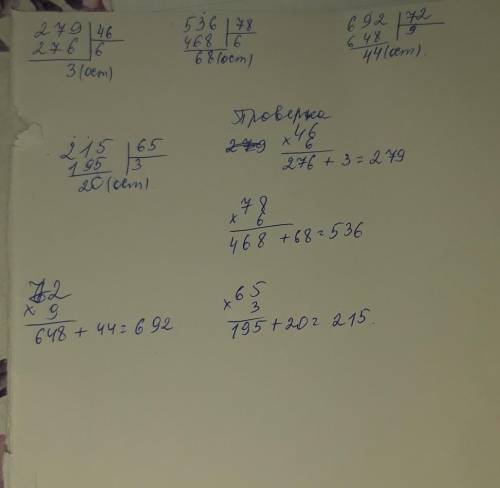 279 | 46
276 | 6
3(ост)
536 | 78
468 | 6
68(ост)
692 | 72
648 | 9
44(ост)
215 | 65
195 | 3
20(ост)
Проверка
279
× 46
6
276 + 3 = 279
× 78
6
468 + 68 = 536
72
× 9
648 + 44 = 692
× 65
3
195 + 20 = 215.